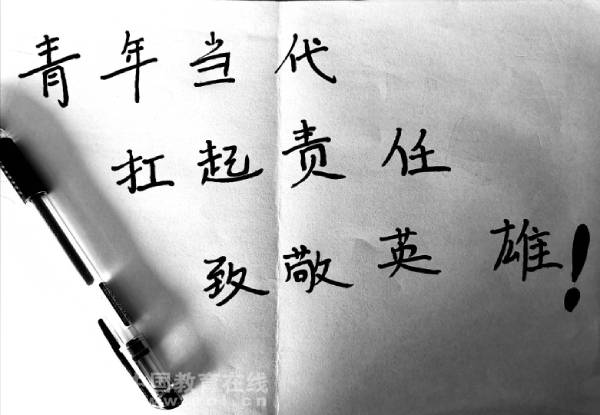 青年当代
扛起责任
致敬英雄!
中国教育在线